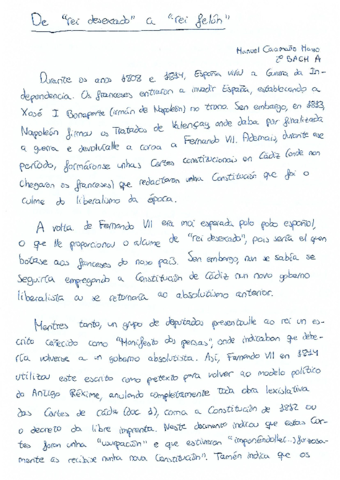 De "rei desexado" a "rei felón"
Manuel Caamaño
2º BACH A
Durante os anos 1808 e 1814, España viviu a Guerra da In-
dependencia. Os franceses entraron a invadir España, establecendo a
Xosé I Bonaparte (irmán de Napoleón) no trono. Sen embargo, en 1813,
Napoleón firmou os Tratados de Valençay, onde daba por finalizada
a guerra, e devolvíalle a coroa a Fernando VII. Ademais, durante ese
período, formáronse unhas Cortes constitucionais en Cádiz (onde non
chegaron os franceses) que redactaron unha Constitución que foi o
culme do liberalismo da época.
A volta de Fernando VII era moi esperada polo pobo español,
o que lle proporcionou o alcume de "rei desexado", pois sería el quen
botase aos franceses do noso país. Sen embargo, nun se sabía se
seguiría empregando a Constitución de Cádiz nun novo goberno
liberalista ou se retornaría ao absolutismo anterior.
Mentres tanto, un grupo de deputados presentoulle ao rei un es-
crito coñecido como "Manifesto dos persas", onde indicaban que debe-
ría volverse a un goberno absolutista. Así, Fernando VII en 1814
utilizou este escrito como pretexto para volver ao modelo político
do Antigo Réxime, anulando completamente toda obra lexislativa
das Cortes de Cádiz (doc 1), coma a Constitución de 1812 ou
o decreto da libre imprenta. Neste documento indicou que estas Cor-
tes foron unha "usurpación" e que estiveran "impoñéndolles(...) furiosa-
mente as recibise nunha nova Constitución". Tamén indica que os